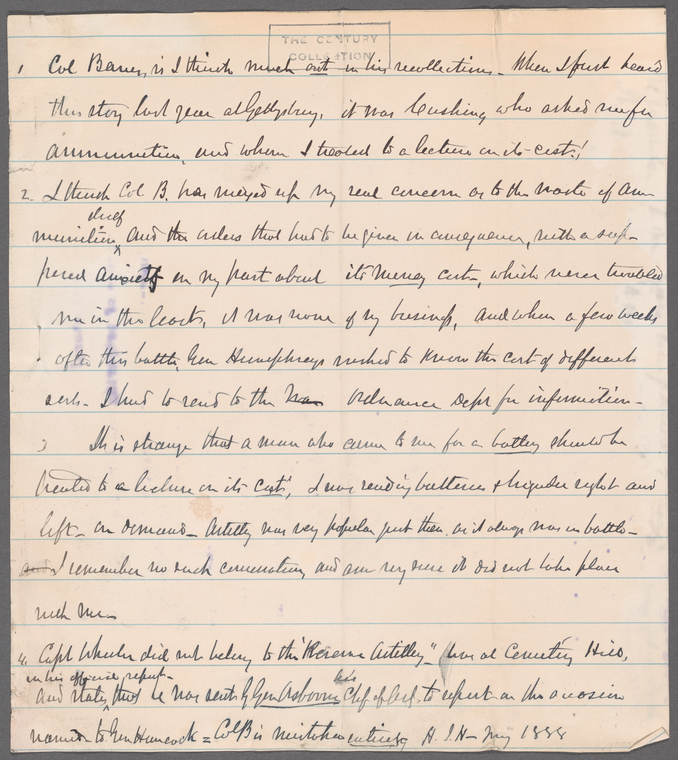 THE CENTURY
COLLECTION
1 Col Bane, is I think much out in his recollections - When I first heard
this story last year at Gettysburg, it was Cushing who asked me for
ammunition, and whom I treated to a lecture on its cost!
2. I think Col B. has mixed up my real concern as to the waste of am-
chief
munition, and the orders that had to be given in consequence, with a sup-
posed anxiety on my part about its money cost, which never troubled
me in the least, it was none of my business, and when a few weeks
after this battle, Gen Humphreys wished to know the cost of different
sorts - I had to send to the Ordnance Dept for information -
3 It is strange that a man who came to me for a battery should be
treated to a lecture on its cost! I was sending batteries & brigades right and
left - on demand - Artillery was very popular just then, as it always was in battle -
I remember no such conversation, and am very sure it did not take place
with me -
4. Capt Wheeler did not belong to this "Reserve Artillery" - was at Cemetery Hill,
in his official report -
and states that he was sent by Gen Osborn his Chf of Art. to report on the occasion
named to Gen Hancock = Col B is mistaken entirely H. J. H - 1888